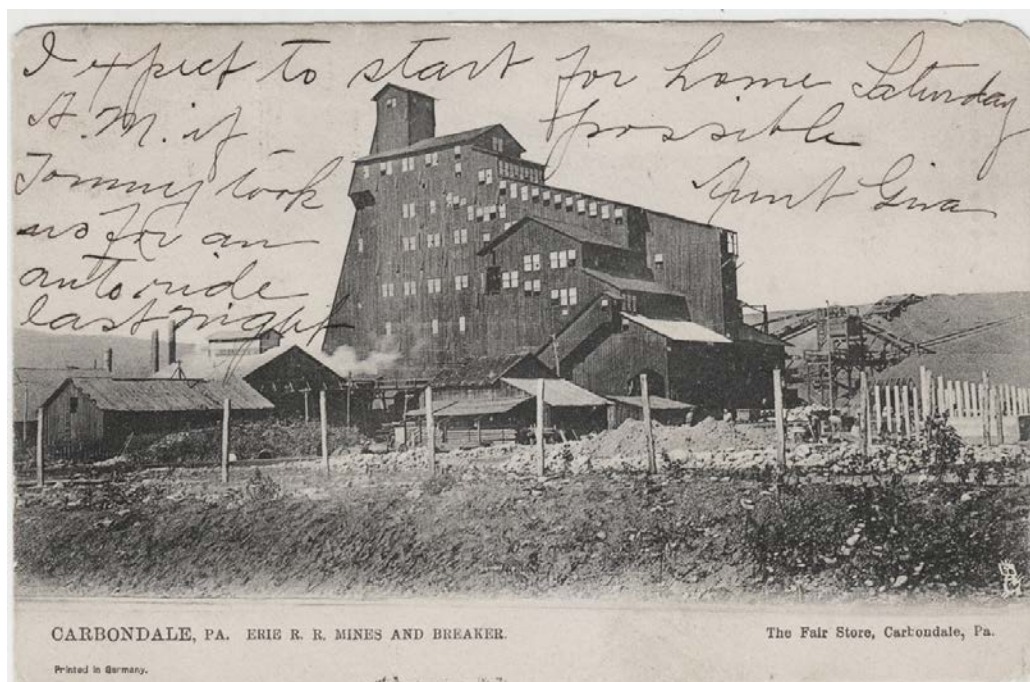 I expect to start for home Saturday
A.M. if possible
Tommy took Aunt
us for an
auto ride
last night
CARBONDALE, PA. ERIE R. R. MINES AND BREAKER.
The Fair Store, Carbondale, Pa.
Printed in Germany.